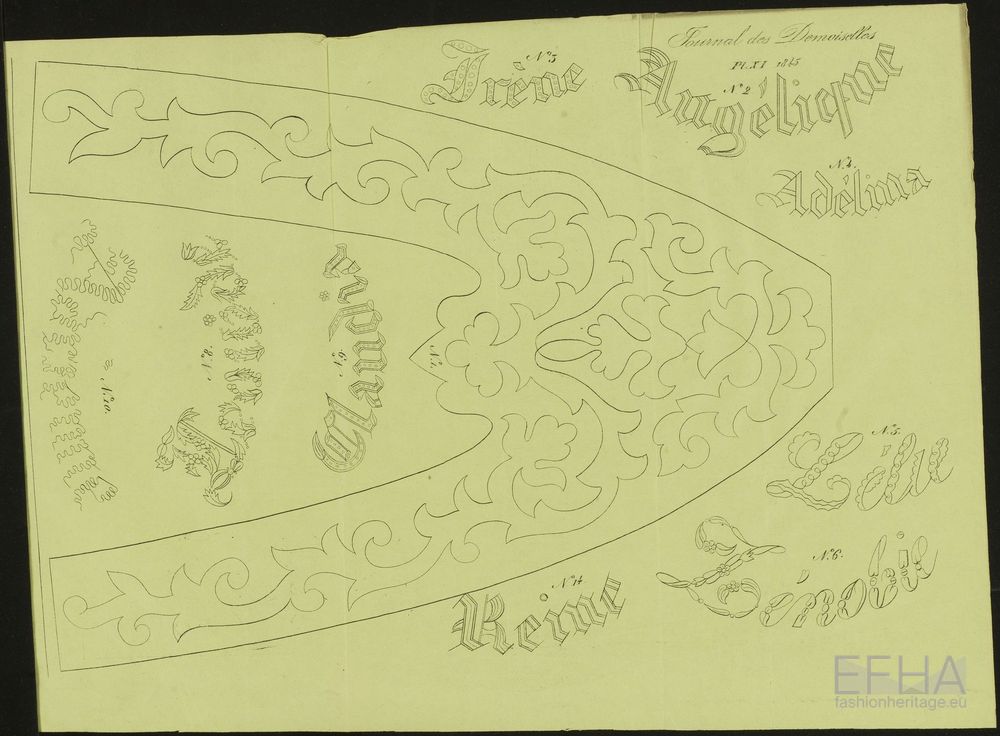 Journal des Demoiselles
Pl. XI 1845
N° 3
Irène
N° 2
Angélique
N° 4.
Adélina
N° 1.
N° 9.
Claudia
N° 8.
N° 10.
N° 5.
N° 6.
Zénobie
N° 14
Reine
EFHA
fashionheritage.eu